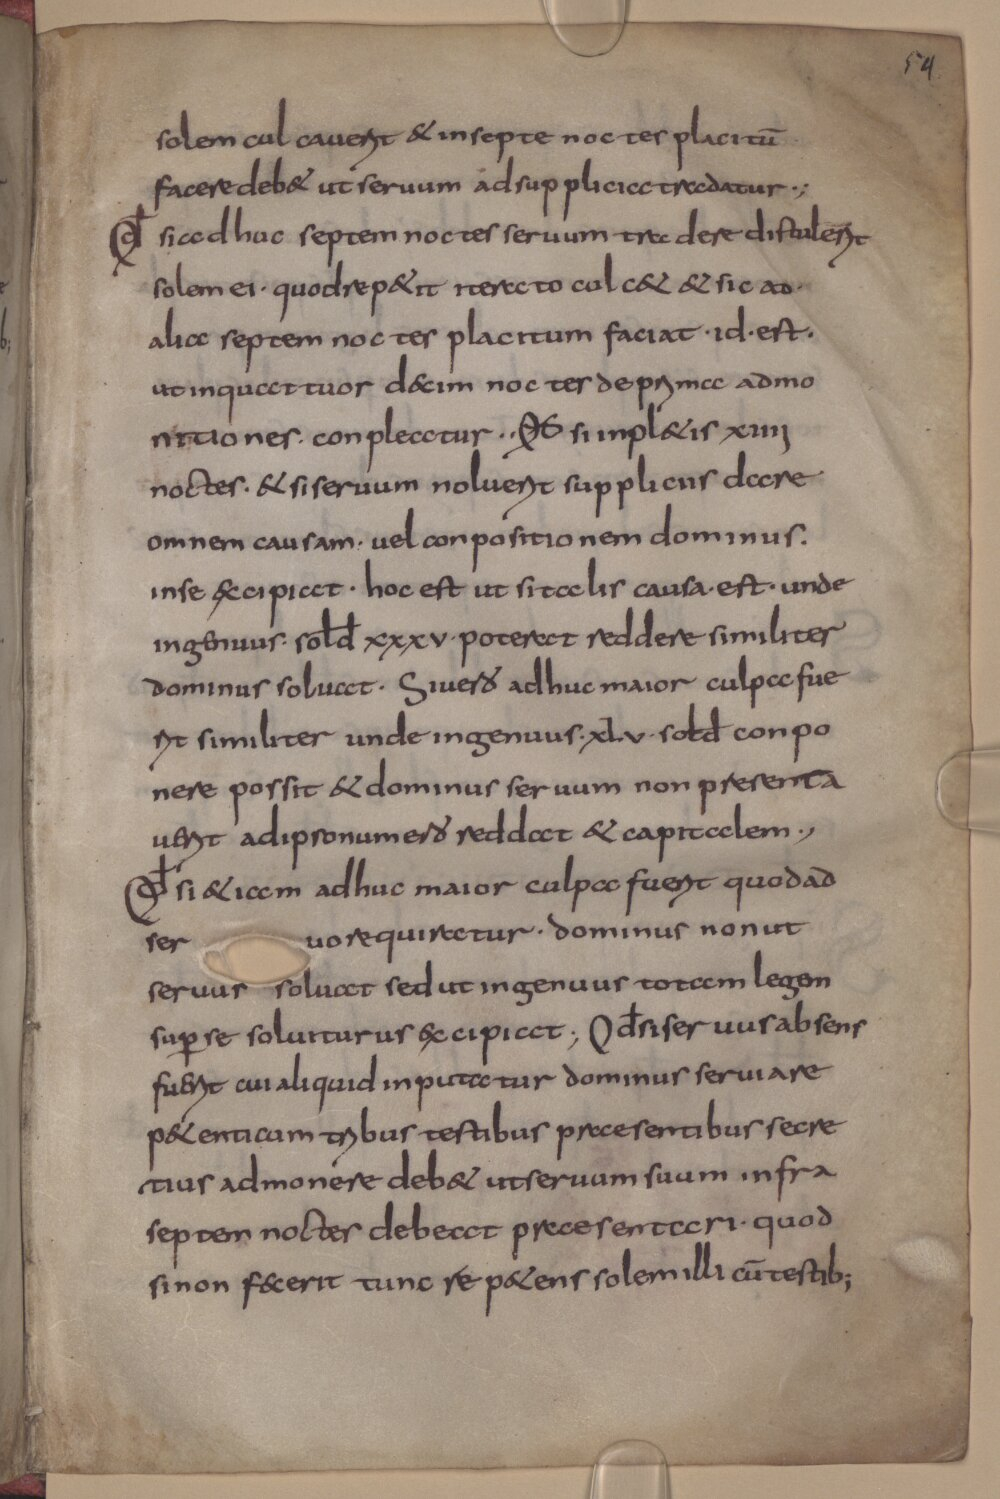 54
solem culcauerit & in septe noctes placitū
facere deb& ut seruum ad supplicia tradatur.,
Qđ si adhuc septem noctes seruum tradere distulerit
solem ei. quod rep&it iterato culc& & sic ad.
alia septem noctes placitum faciat. id. est.
ut in quattuor d&cim noctes de prima admo
nitiones. conpleatur.. QS si inpl&is xiiii
noctes. & si seruum noluerit suppliciis dare
omnem causam. uel conpositionem dominus.
in se &cipiat. hoc est ut si talis causa. est. unde
ingenuus. solđ xxxv. poterat reddere similiter
dominus soluat. Si uero adhuc maior culpa fue
rit similiter unde ingenuus. xLv. solđ conpo
nere possit & dominus seruum non presenta
uerit ad ipso numero reddat & capitalem.,
Qđ si &iam adhuc maior culpa fuerit quod ad
ser uo requiratur. dominus non ut
seruus soluat sed ut ingenuus totam legem
sup̱ se soluiturus &cipiat; Qđ si seruus absens
fuerit cui aliquid inputatur dominus seruiare
p&enti cum tribus testibus praesentibus secre
tius admonere deb& ut seruum suum infra
septem noctes debeat praesentari. quod
si non f&cerit tunc rep&ens solem illi cū testib;